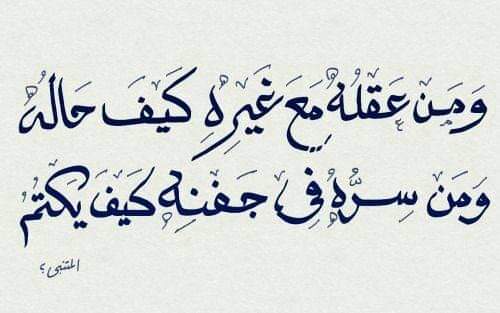 وَمَن عَقلُهُ مَعَ غَيرِهِ كَيفَ حَالُهُ
وَمَن سِرُّهُ فِي جَفنِهِ كَيفَ يَكتُمُ
المتنبي؟